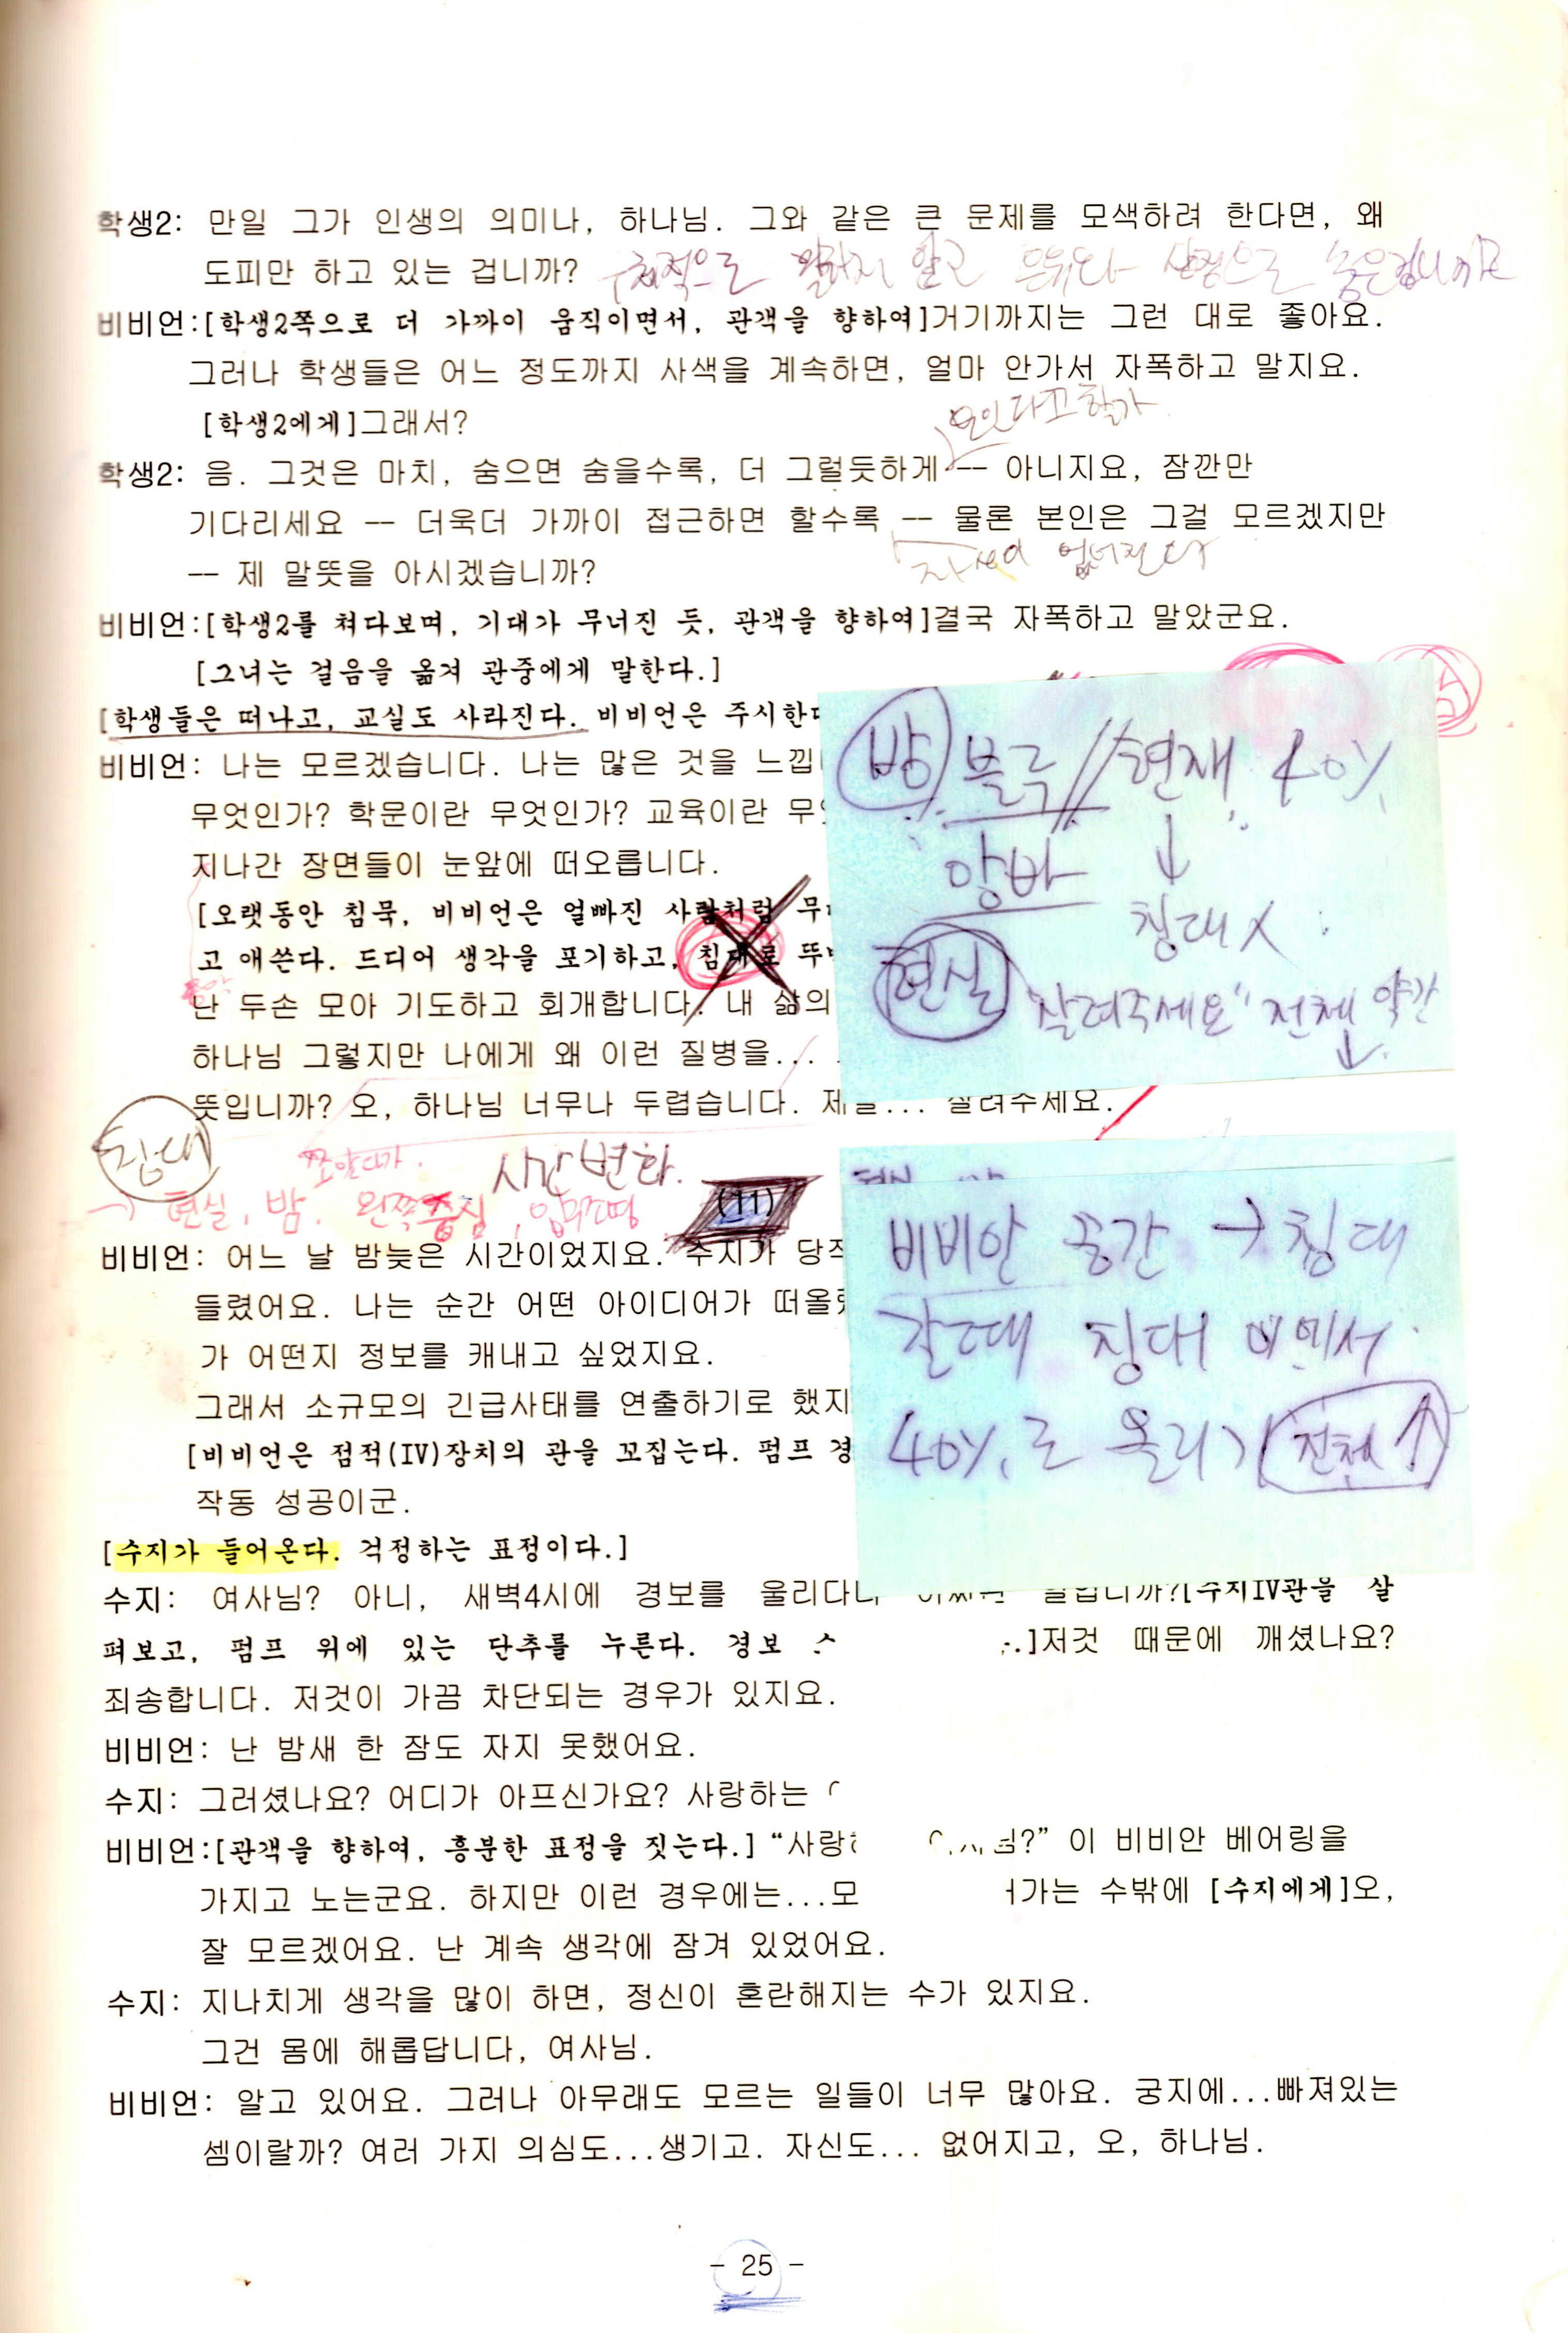 학생2: 만일 그가 인생의 의미나, 하나님. 그와 같은 큰 문제를 모색하려 한다면, 왜
도피만 하고 있는 겁니까? 구체적으로 말하지 않고
비비언:[학생2쪽으로 더 가까이 움직이면서, 관객을 향하여]거기까지는 그런 대로 좋아요.
그러나 학생들은 어느 정도까지 사색을 계속하면, 얼마 안가서 자폭하고 말지요.
[학생2에게]그래서?
학생2: 음. 그것은 마치, 숨으면 숨을수록, 더 그럴듯하게 -- 아니지요, 잠깐만
기다리세요 -- 더욱더 가까이 접근하면 할수록 -- 물론 본인은 그걸 모르겠지만
없어진다
-- 제 말뜻을 아시겠습니까?
비비언:[학생2를 쳐다보며, 기대가 무너진 듯, 관객을 향하여]결국 자폭하고 말았군요.
[그녀는 걸음을 옮겨 관중에게 말한다.]
[학생들은 떠나고, 교실도 사라진다. 비비언은 주시한
비비언: 나는 모르겠습니다. 나는 많은 것을
무엇인가? 학문이란 무엇인가? 교육이란
지나간 장면들이 눈앞에 떠오릅니다.
[오랫동안 침묵, 비비언은 얼빠진 사람처럼
고 애쓴다. 드디어 생각을 포기하고, 침대로
난 두손 모아 기도하고 회개합니다. 내 삶의
하나님 그렇지만 나에게 왜 이런 질병을...
뜻입니까? 오, 하나님 너무나 두렵습니다. 살려주세요.
밤 블루 // 현재 40%
암바 ↓
침대 X
현실 "살려주세요" 전체 약간
↓
침대
시간변화.
→ 현실, 밤, 왼쪽중심
(11)
비비안 공간 → 침대
갈때 침대
40%로 올리기 전체↑
비비언: 어느 날 밤늦은 시간이었지요. 수지가
들렸어요. 나는 순간 어떤 아이디어가
가 어떤지 정보를 캐내고 싶었지요.
그래서 소규모의 긴급사태를 연출하기로 했지
[비비언은 점적(IV)장치의 관을 꼬집는다. 펌프
작동 성공이군.
[수지가 들어온다. 걱정하는 표정이다.]
수지: 여사님? 아니, 새벽4시에 경보를 [수지IV관을 살
펴보고, 펌프 위에 있는 단추를 누른다. 경보 .]저것 때문에 깨셨나요?
죄송합니다. 저것이 가끔 차단되는 경우가 있지요.
비비언: 난 밤새 한 잠도 자지 못했어요.
수지: 그러셨나요? 어디가 아프신가요? 사랑하는
비비언:[관객을 향하여, 흥분한 표정을 짓는다.] “사랑 ?” 이 비비안 베어링을
가지고 노는군요. 하지만 이런 경우에는...모 가는 수밖에 [수지에게]오,
잘 모르겠어요. 난 계속 생각에 잠겨 있었어요.
수지: 지나치게 생각을 많이 하면, 정신이 혼란해지는 수가 있지요.
그건 몸에 해롭답니다, 여사님.
비비언: 알고 있어요. 그러나 아무래도 모르는 일들이 너무 많아요. 궁지에...빠져있는
셈이랄까? 여러 가지 의심도...생기고. 자신도... 없어지고, 오, 하나님.
- 25 -